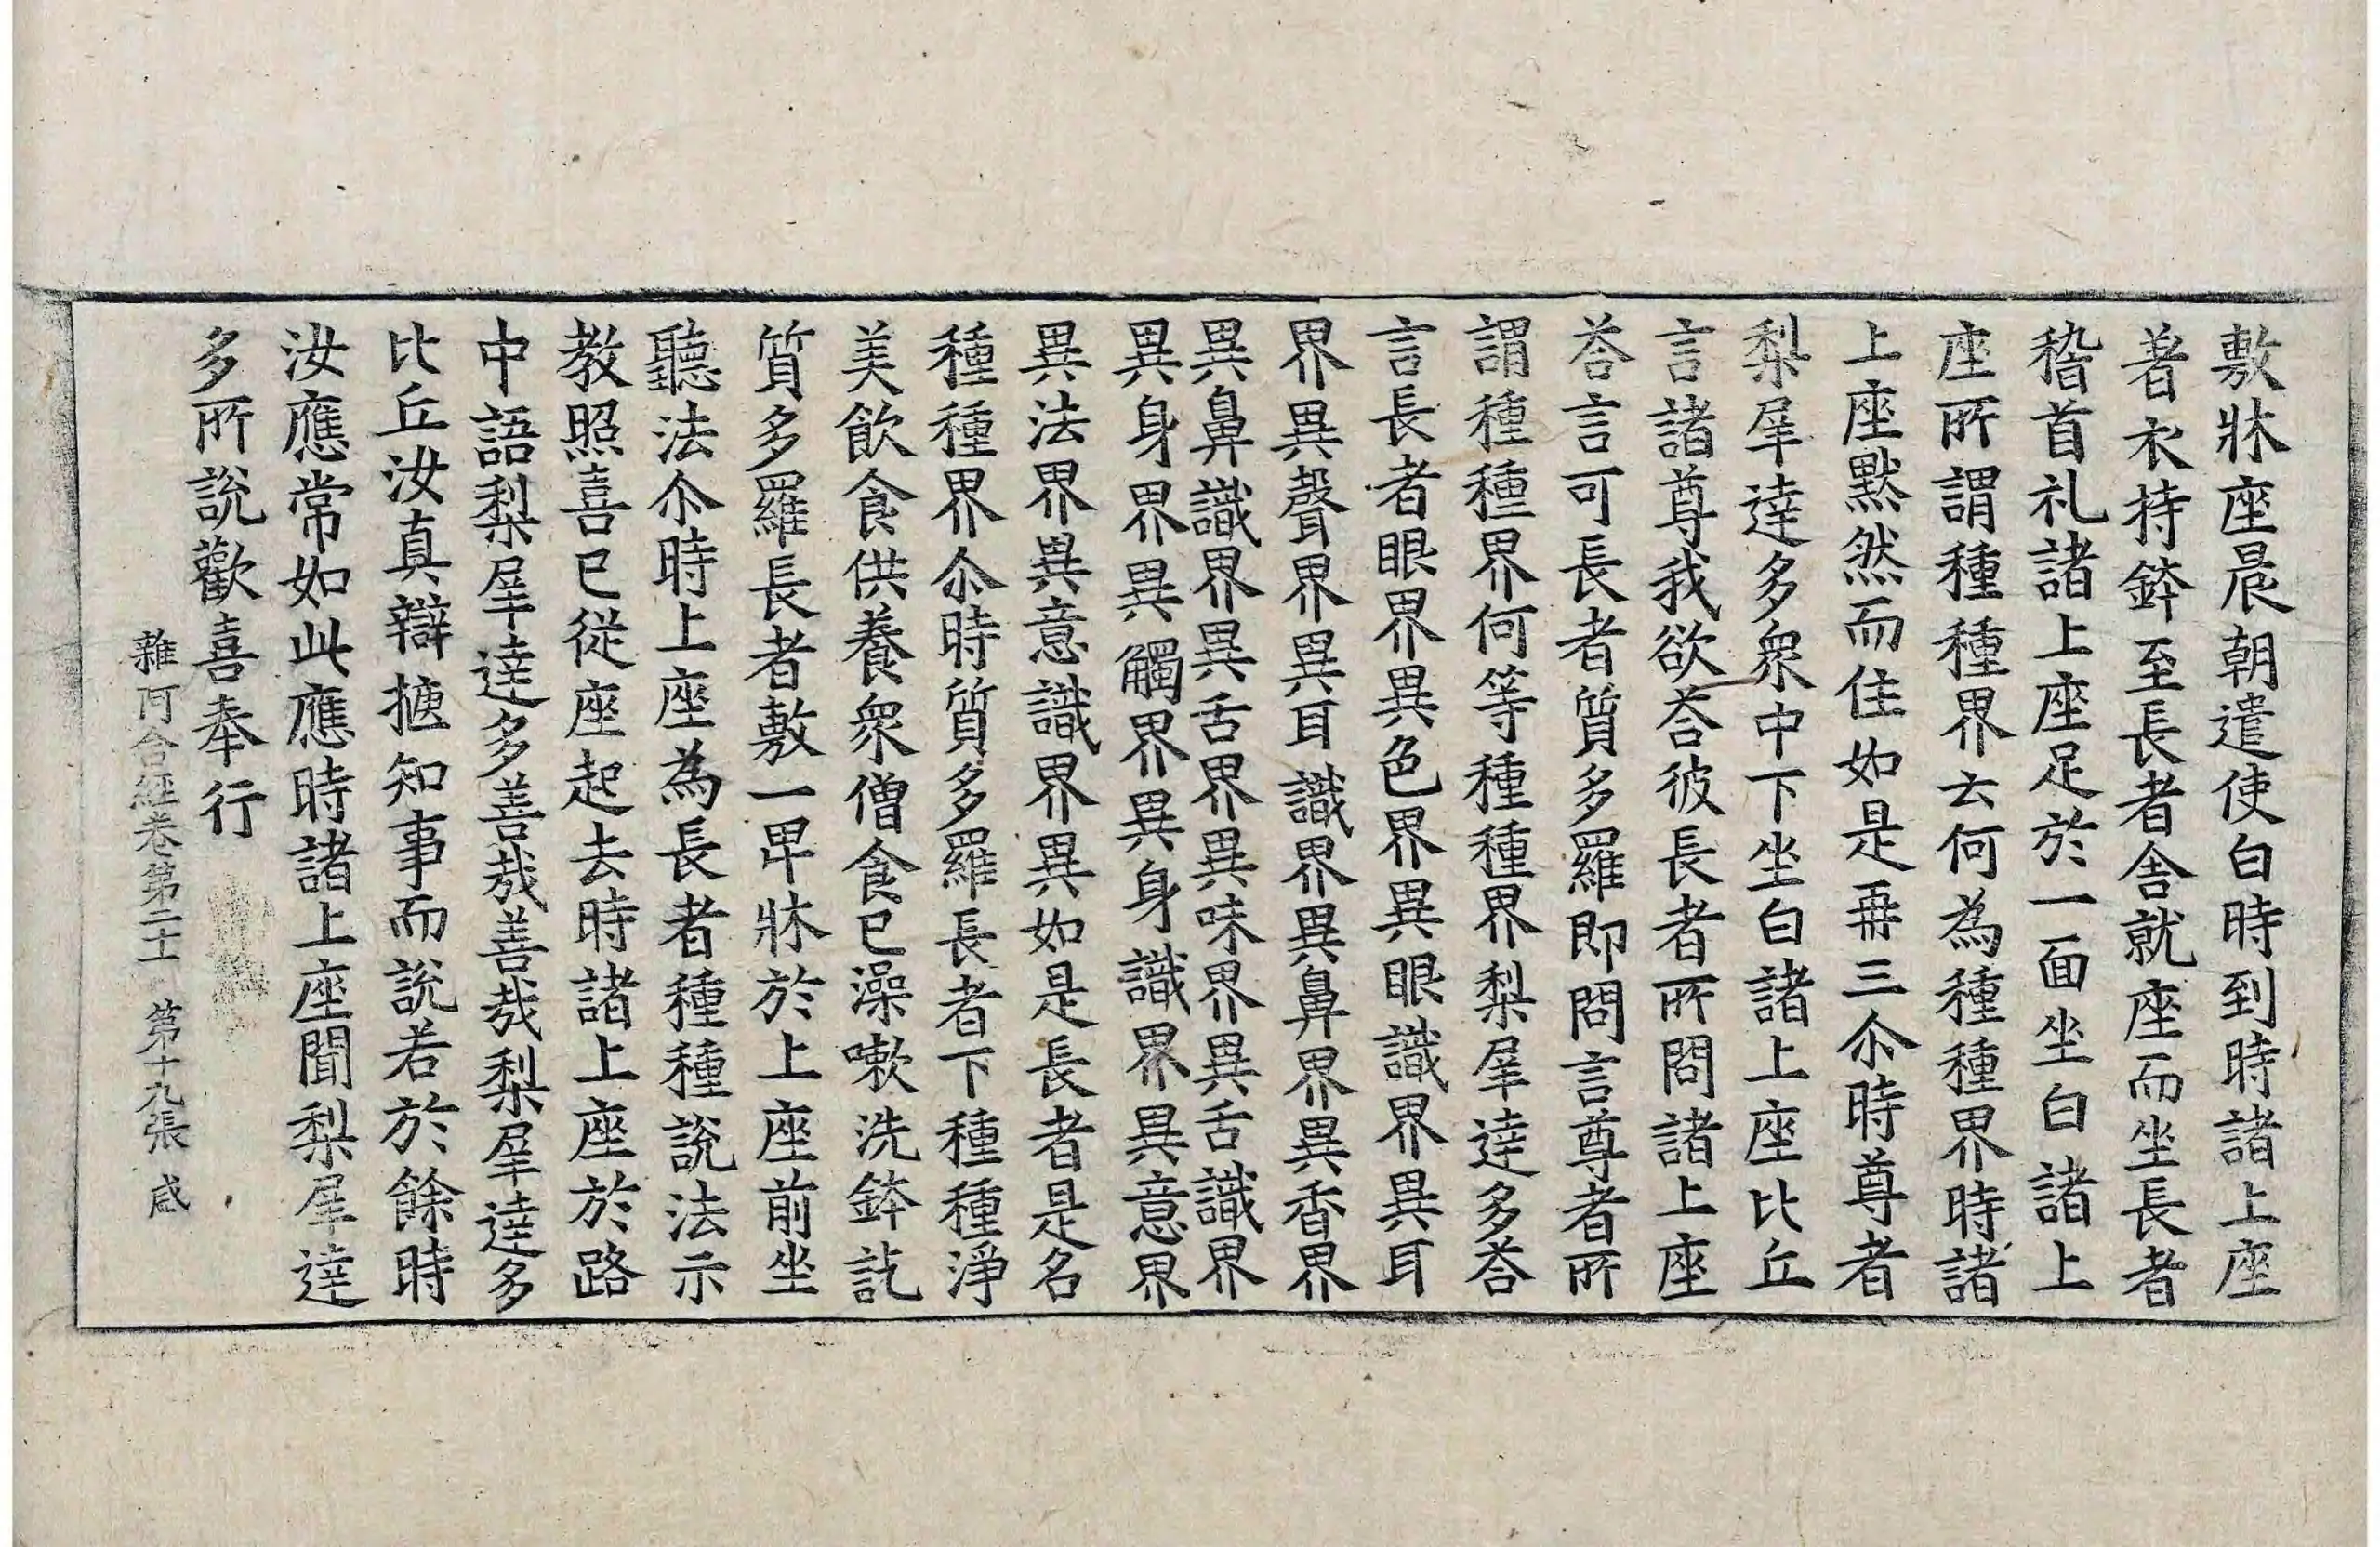 敷牀座晨朝遣使白時到時諸上座
著衣持鉢至長者舎就座而坐長者
稽首礼諸上座足於一面坐白諸上
座所謂種種界云何為種種界時諸
上座默然而住如是再三尒時尊者
梨犀達多衆中下坐白諸上座比丘
言諸尊我欲荅彼長者所問諸上座
荅言可長者質多羅即問言尊者所
謂種種界何等種種界梨犀達多荅
言長者眼界異色界異眼識界異耳
界異聲界異耳識界異鼻界異香界
異鼻識界異舌界異味界異舌識界
異身界異觸界異身識界異意界
異法界異意識界異如是長者是名
種種界尒時質多羅長者下種種淨
美飲食供養衆僧食已澡嗽洗鉢訖
質多羅長者敷一卑牀於上座前坐
聽法尒時上座為長者種種說法示
教照喜已從座起去時諸上座於路
中語梨犀達多善哉善哉梨犀達多
比丘汝真辯揔知事而說若於餘時
汝應常如此應時諸上座聞梨犀達
多所說歡喜奉行
雜阿含經卷第二十一 第十九張 咸